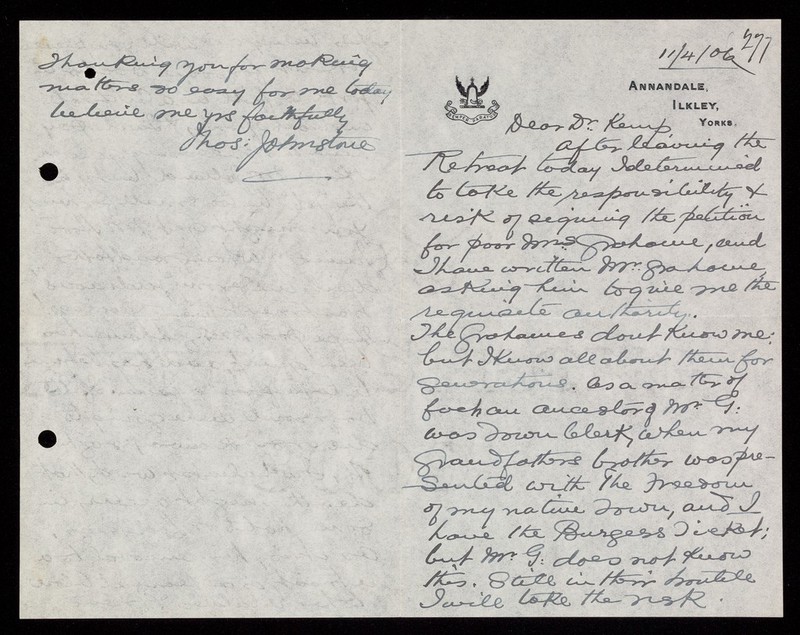 277
11/4/06
ANNANDALE,
ILKLEY,
YORKS.
Dear Dr. Kemp,
After leaving the
Retreat today I determined
to take the responsibility &
risk of signing the petition
for poor Mrs. Grahame, and
I have written Mr. Grahame,
asking him to give me the
requisite authority.
The Grahames dont know me:
but I know all about them for
generations. As a matter of
fact an ancestor of Mr. G:
was Town Clerk, when my
Grandfathers brother was pre-
sented with The Freedom
of my native Town, and I
have the Burgess Ticket;
but Mr. G: does not know
this. Still in their trouble
I will take the risk.
Thanking you for making
matters so easy for me today
believe me yrs faithfully
Thos: Johnstone